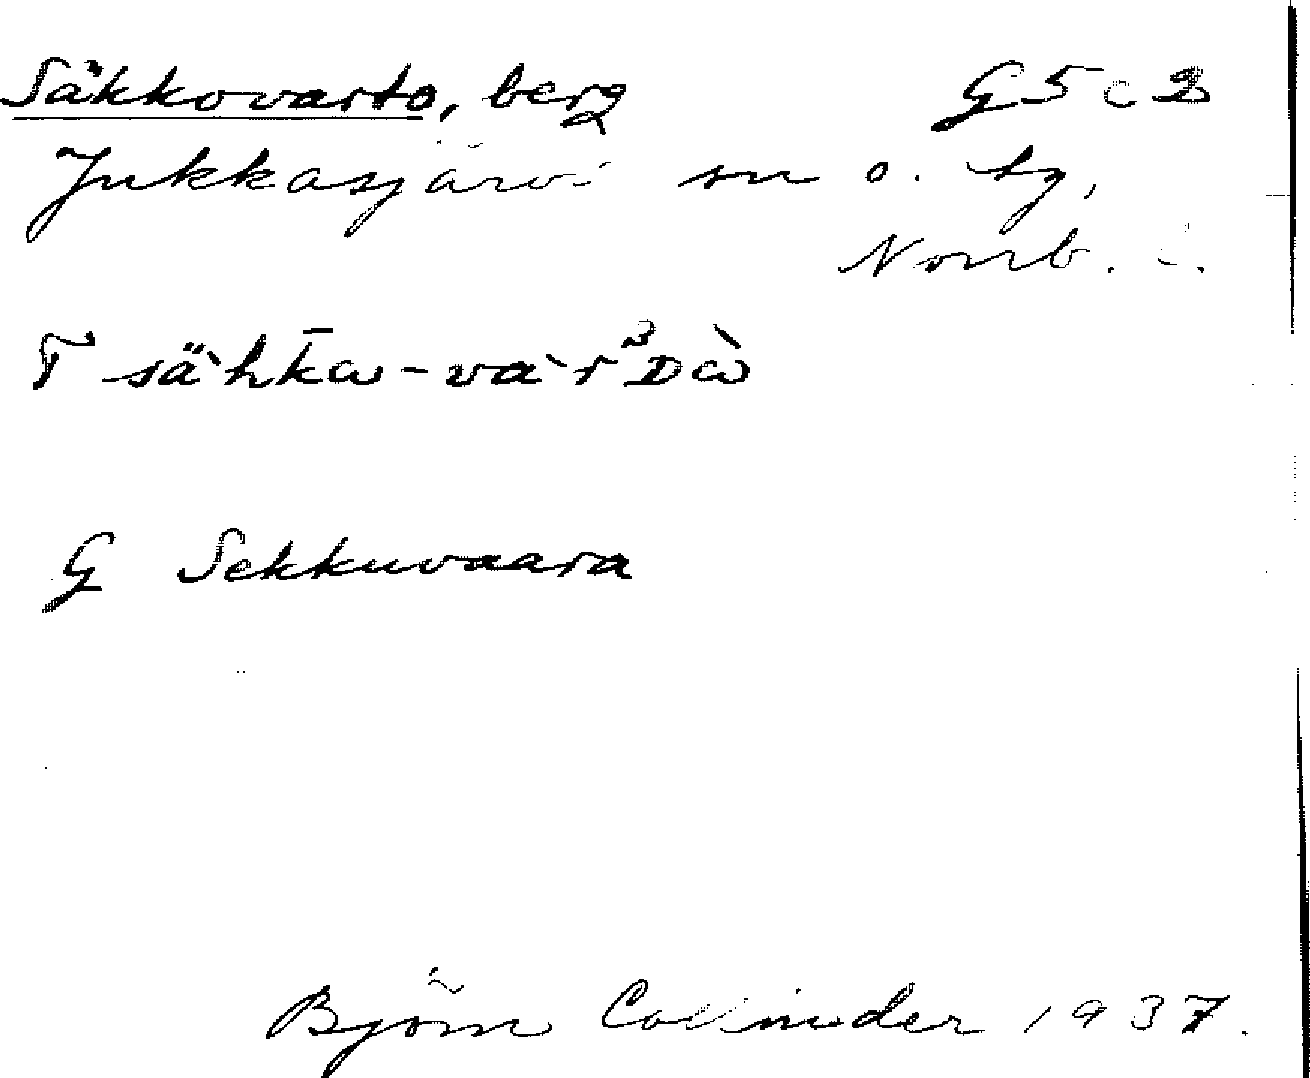 Säkkovarto, berg G5c2
Jukkasjärvi sn o. tg,
Norrb. l.
T sä`hk̄ω-va`rᵌDὼ
G Sekkuvaara
Björn Collinder 1937.